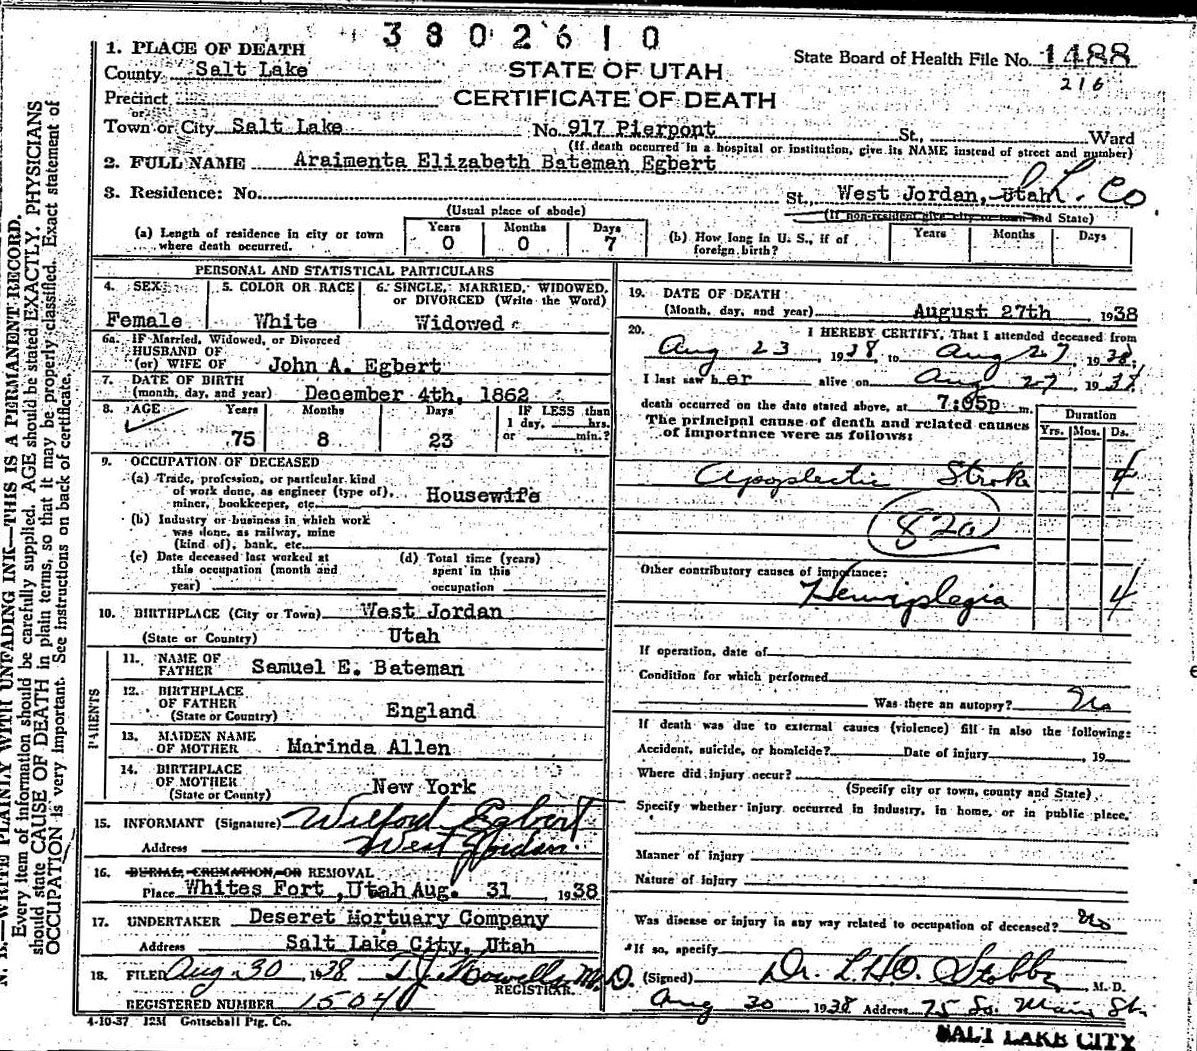 3802610
1. PLACE OF DEATH
State Board of Health File No. 1488
County Salt Lake
STATE OF UTAH
216
Precinct
CERTIFICATE OF DEATH
or
Town or City Salt Lake No. 917 Pierpont St., Ward
(If death occurred in a hospital or institution, give its NAME instead of street and number)
2. FULL NAME Araimenta Elizabeth Bateman Egbert
3. Residence: No. St., West Jordan, Utah S.L. Co
(Usual place of abode) (If non-resident give city or town and State)
(a) Length of residence in city or town where death occurred. Years 0 Months 0 Days 7
(b) How long in U. S., if of foreign birth? Years Months Days
PERSONAL AND STATISTICAL PARTICULARS
4. SEX Female
5. COLOR OR RACE White
6. SINGLE, MARRIED, WIDOWED, or DIVORCED (Write the Word) Widowed
6a. IF Married, Widowed, or Divorced
HUSBAND OF
(or) WIFE OF John A. Egbert
7. DATE OF BIRTH
(month, day, and year) December 4th, 1862
8. AGE Years 75 Months 8 Days 23
IF LESS than
1 day, hrs.
or min.?
9. OCCUPATION OF DECEASED
(a) Trade, profession, or particular kind
of work done, as engineer (type of),
miner, bookkeeper, etc. Housewife
(b) Industry or business in which work
was done, as railway, mine
(kind of), bank, etc.
(c) Date deceased last worked at
this occupation (month and
year)
(d) Total time (years)
spent in this
occupation
10. BIRTHPLACE (City or Town) West Jordan
(State or Country) Utah
PARENTS
11. NAME OF
FATHER Samuel E. Bateman
12. BIRTHPLACE
OF FATHER
(State or Country) England
13. MAIDEN NAME
OF MOTHER Marinda Allen
14. BIRTHPLACE
OF MOTHER
(State or County) New York
15. INFORMANT (Signature) Wilford Egbert
Address West Jordan.
16. BURIAL, CREMATION, OR REMOVAL
Place Whites Fort, Utah Aug. 31 1938
17. UNDERTAKER Deseret Mortuary Company
Address Salt Lake City, Utah
18. FILED Aug 30 1938 T.J. Howells, M.D.
REGISTRAR.
REGISTERED NUMBER 15040
4-10-37 12M Gottschall Ptg. Co.
19. DATE OF DEATH
(Month, day, and year) August 27th 1938
20. I HEREBY CERTIFY, That I attended deceased from
Aug 23 1938, to Aug 27 1938;
I last saw her alive on Aug 27 1938
death occurred on the date stated above, at 7:05p m.
The principal cause of death and related causes
of importance were as follows:
Duration
Yrs. Mos. Ds.
Apoplectic Stroke 4
82a
Other contributory causes of importance:
Hemiplegia 4
If operation, date of
Condition for which performed
Was there an autopsy? No
If death was due to external causes (violence) fill in also the following:
Accident, suicide, or homicide? Date of injury , 19
Where did injury occur?
(Specify city or town, county and State)
Specify whether injury occurred in industry, in home, or in public place.
Manner of injury
Nature of injury
Was disease or injury in any way related to occupation of deceased? No
If so, specify
(Signed) Dr. L.H.O. Stobbe M. D.
Aug 30 1938 Address 75 So. Main St.
SALT LAKE CITY
N. B.—WRITE PLAINLY WITH UNFADING INK—THIS IS A PERMANENT RECORD.
Every item of information should be carefully supplied. AGE should be stated EXACTLY. PHYSICIANS
should state CAUSE OF DEATH in plain terms, so that it may be properly classified. Exact statement of
OCCUPATION is very important. See instructions on back of certificate.